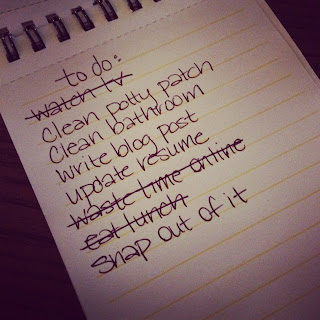 to do:
watch tv
clean potty patch
clean bathroom
write blog post
update resume
waste time online
eat lunch
snap out of it